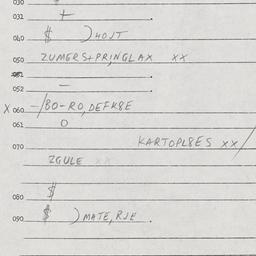 030 $
031 + .
040 $ )HOJT
050 ZUMERS+PRINGLAX XX
051 .
052 – .
X 060 –/BO-RO,DEFK8E
061 O
070 KARTOPL8ES XX/
ZGULE XX
080 $
090 $ )MATE,RJE .